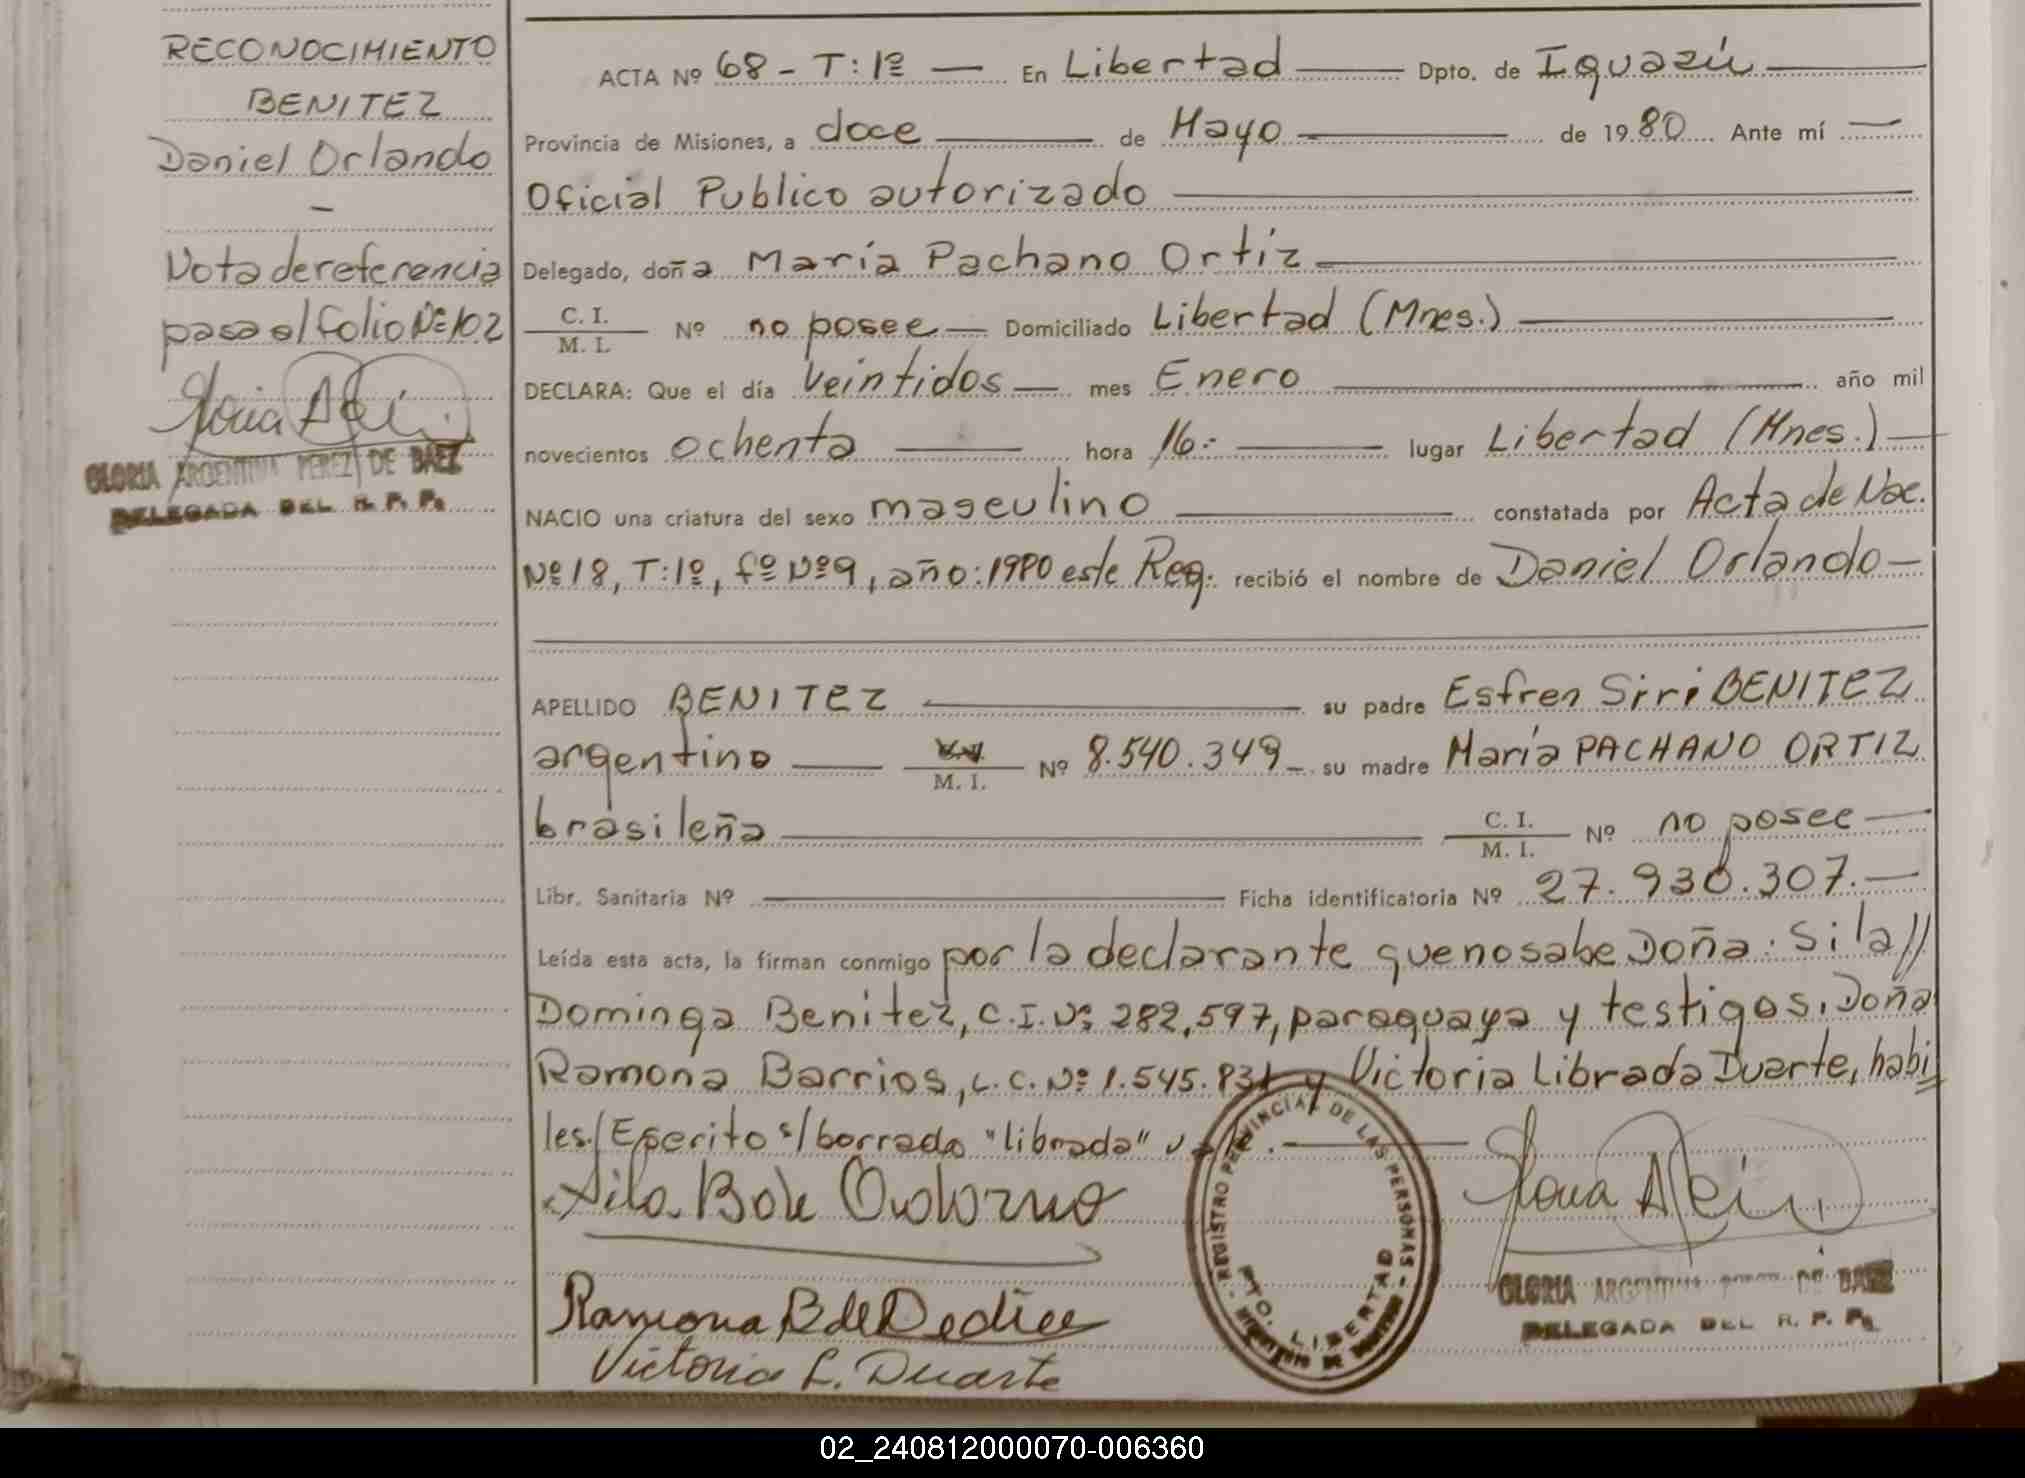 RECONOCIMIENTO
BENITEZ
Daniel Orlando
-
Nota de referencia
pasa al folio Nº 102
GLORIA ARGENTINA PEREZ DE BAEZ
DELEGADA DEL R. P. P.
ACTA Nº 68 - T: 1º — En Libertad — Dpto. de Iguazú —
Provincia de Misiones, a doce — de Mayo — de 1980 Ante mí —
Oficial Publico autorizado —
Delegado, doña María Pachano Ortiz —
C. I.
M. I.
Nº no posee — Domiciliado Libertad (Mnes.) —
DECLARA: Que el día veintidos — mes Enero — año mil
novecientos ochenta — hora 16.- — lugar Libertad (Mnes.) —
NACIO una criatura del sexo masculino — constatada por Acta de Nac.
Nº 18, T: 1º, fº Nº 9, año: 1980 este Reg. recibió el nombre de Daniel Orlando —
APELLIDO BENITEZ — su padre Esfren Siri BENITEZ
argentino — M. I. Nº 8.540.349 - su madre María PACHANO ORTIZ
brasileña — C. I.
M. I.
Nº no posee —
Libr. Sanitaria Nº — Ficha identificatoria Nº 27.930.307. —
Leída esta acta, la firman conmigo por la declarante que no sabe Doña: Sila //
Dominga Benitez, C.I. Nº 282,597, paraguaya y testigos, Doña
Ramona Barrios, L.C. Nº 1.545.831 y Victoria Librada Duarte, habi
les./ Escrito s/ borrado "librada" vale. —
Ramona B de
Victoria L. Duarte
REGISTRO PROVINCIAL DE LAS PERSONAS
PTO. LIBERTAD
GLORIA ARGENTINA PEREZ DE BAEZ
DELEGADA DEL R. P. P.
02_240812000070-006360